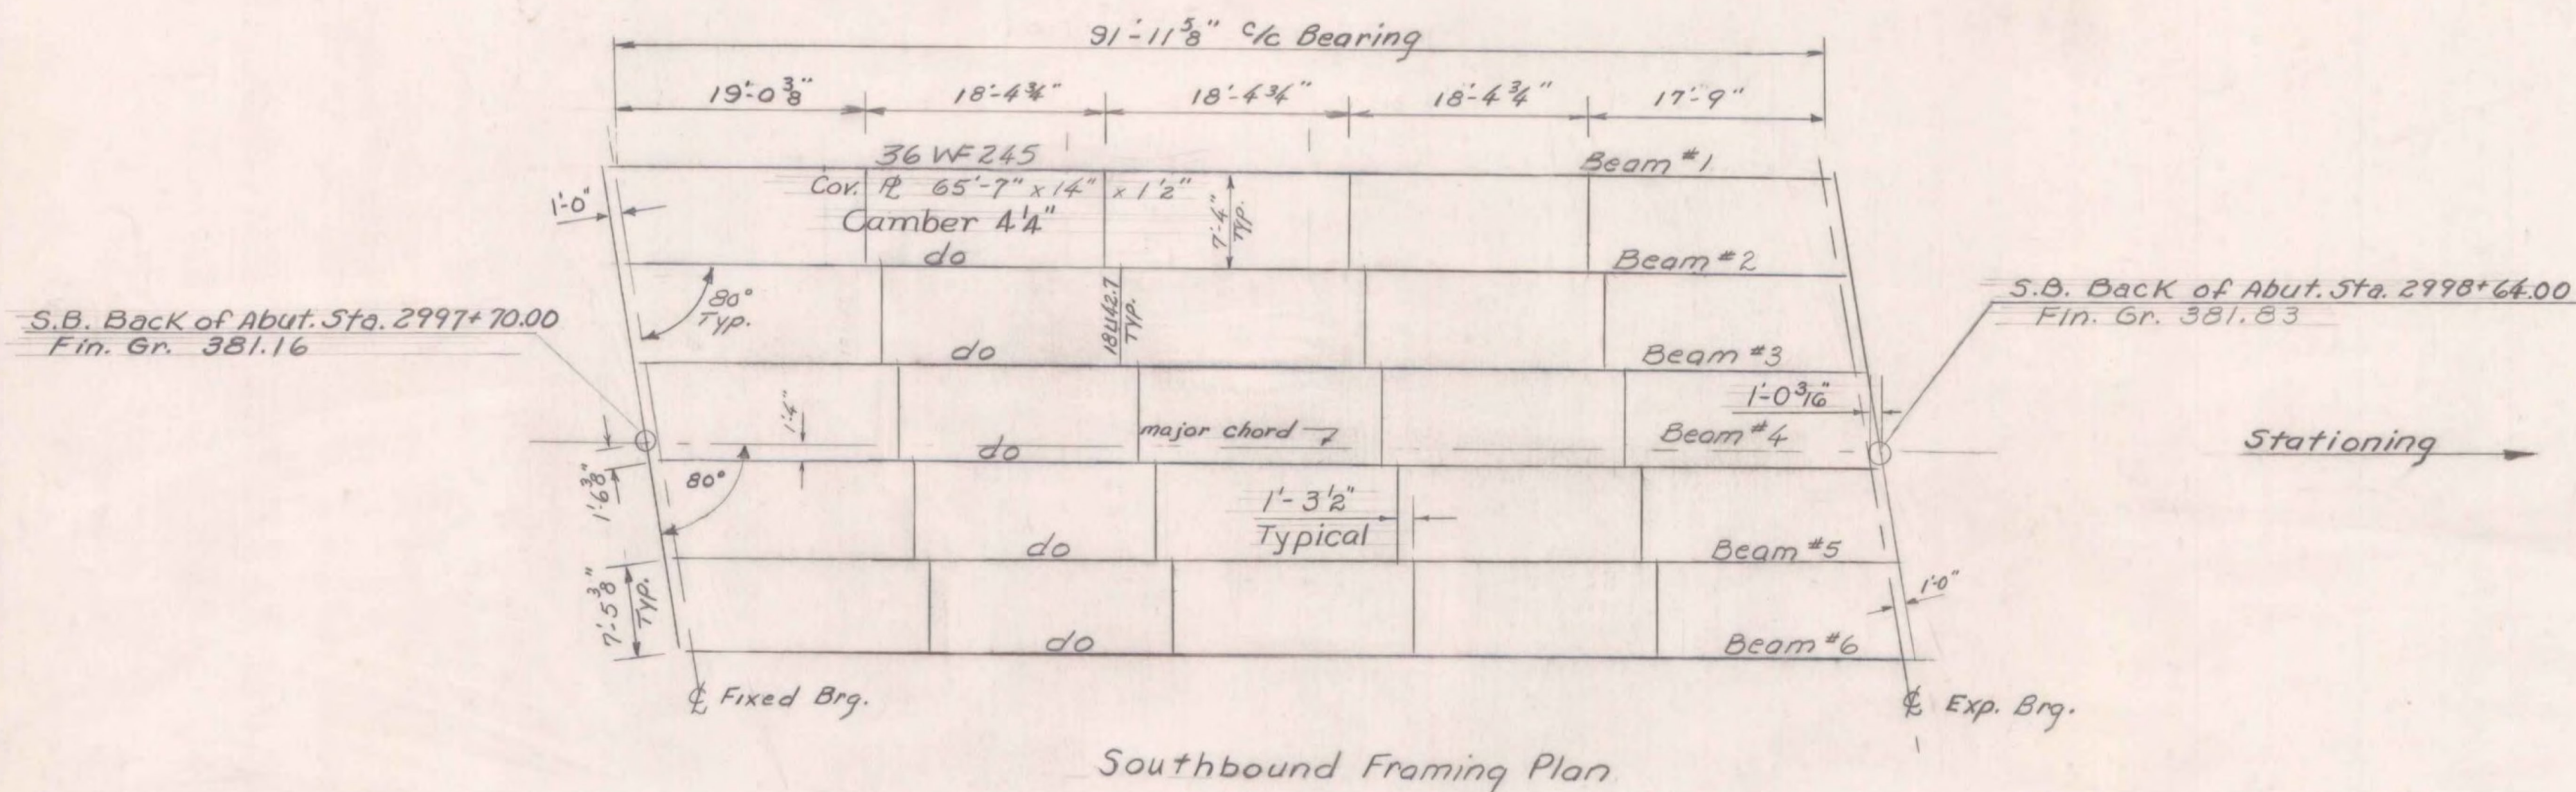 91'-11 5/8" c/c Bearing
19'-0 3/8"
18'-4 3/4"
18'-4 3/4"
18'-4 3/4"
17'-9"
36 WF 245
Beam #1
Cov. PL 65'-7" x 14" x 1 1/2"
1'-0"
Camber 4 1/4"
7'-4"
Typ.
do
Beam #2
80°
Typ.
18⊔42.7
TYP.
S.B. Back of Abut. Sta. 2997+70.00
Fin. Gr. 381.16
S.B. Back of Abut. Sta. 2998+64.00
Fin. Gr. 381.83
do
Beam #3
1'-0 3/16"
1'-4"
major chord
do
Beam #4
Stationing
1'-6 3/8"
80°
1'-3 1/2"
Typical
do
Beam #5
7'-5 3/8"
Typ.
1'-0"
do
Beam #6
℄ Fixed Brg.
℄ Exp. Brg.
Southbound Framing Plan